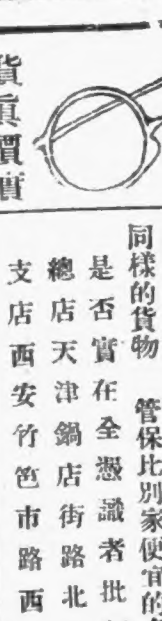 貨真價實
同樣的貨物 管保比別家便宜的
是否實在全憑識者批
總店天津鍋店街路北
支店西安竹笆市路西